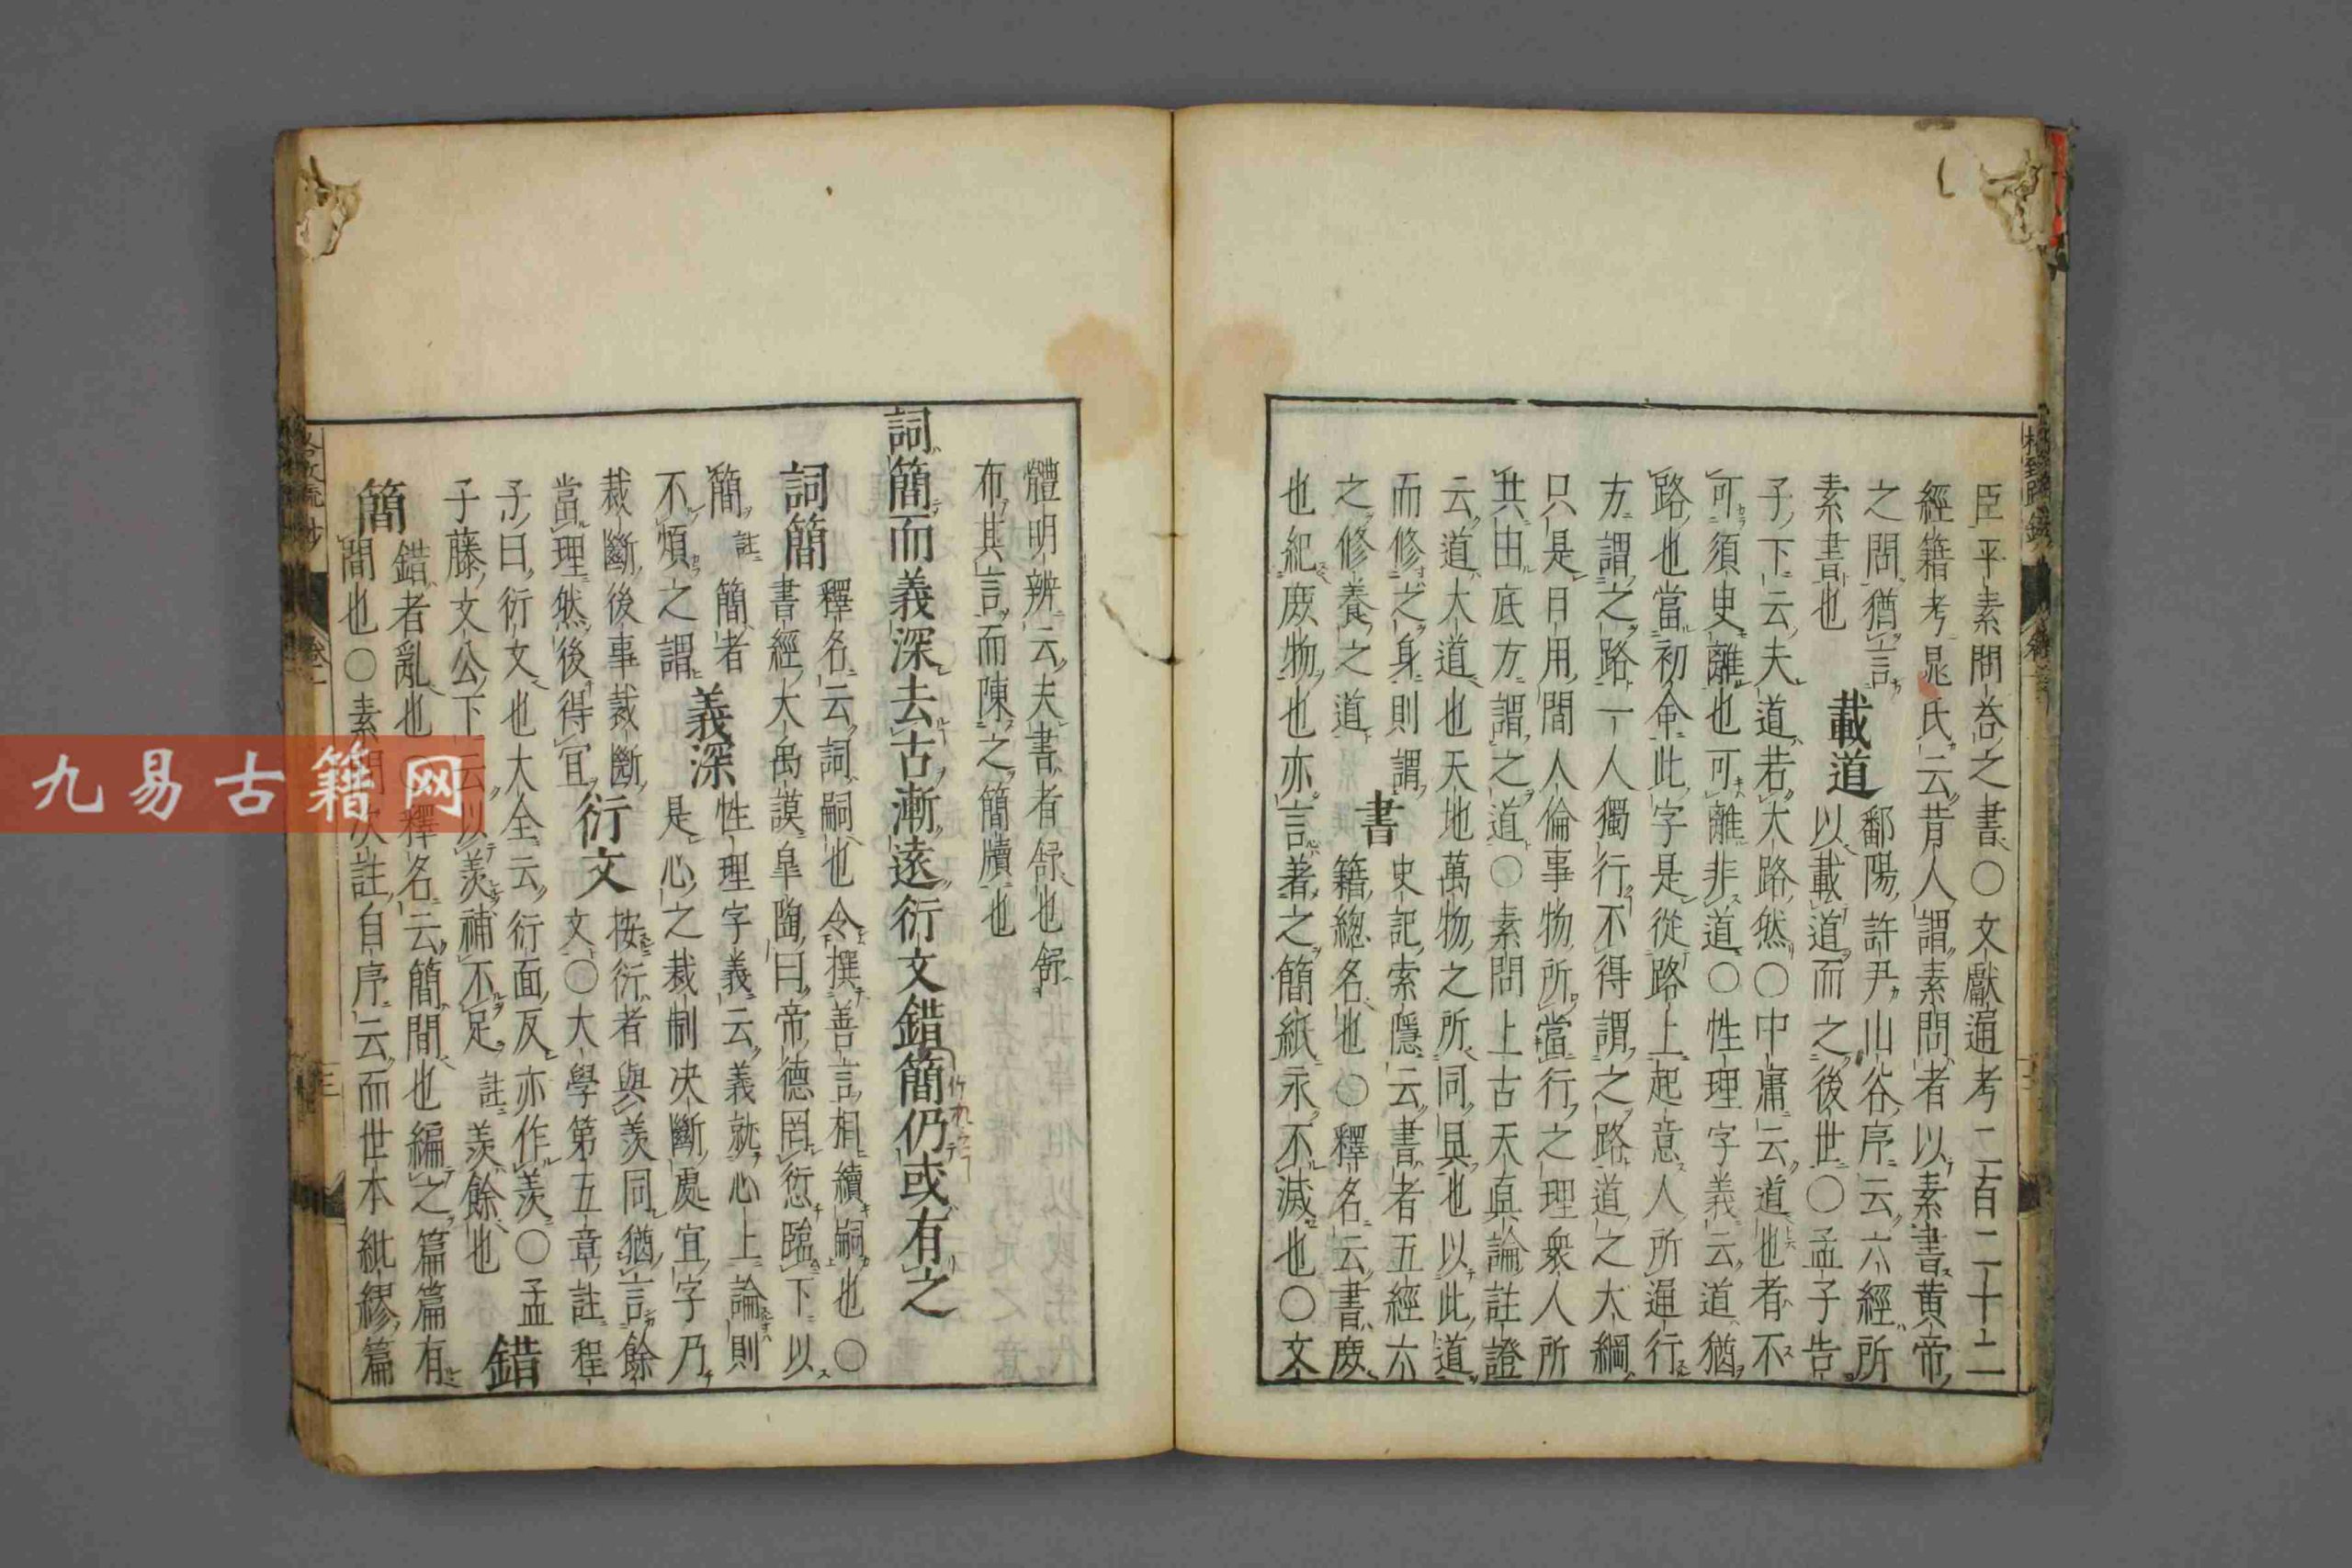 臣平素問答之書〇文獻通考二百二十二
經籍考晁氏云昔人謂素問者以素書黄帝
之問猶言素書也
載道
鄱陽許尹山谷序云六經所以載道而之後世〇孟子告
子下云夫道若大路然〇中庸云道也者不
可須臾離也可離非道〇性理字義云道猶
路也當初命此字是從路上起意人所通行
方謂之路一人獨行不得謂之路道之大綱
只是日用間人倫事物所當行之理衆人所
共由底方謂之道〇素問上古天真論註證
云道大道也天地萬物之所同具也以此道
而修之身則謂之修養之道
書
史記索隱云書者五經六籍總名也〇釋名云書庶
也紀庶物也亦言著之簡紙永不滅也〇文
體明辨云夫書者舒也舒
布其言而陳之簡牘也
詞簡而義深去古漸遠衍文錯簡仍或有之
詞簡
釋名云詞嗣也令撰善言相續嗣也〇
書經大禹謨皐陶曰帝德罔愆臨下以
簡註簡者不煩之謂
義深
性理字義云義就心上論則
是心之裁制决斷處宜字乃
裁斷後事裁斷
當理然後得宜
衍文
按衍者與羨同猶言餘
文〇大學第五章註程
子曰衍文也大全云衍面反亦作羨〇孟
子藤文公下云以羨補不足註羨餘也
錯簡
錯者亂也〇釋名云簡間也編之篇篇有
間也〇素問次註自序云而世本紕繆篇
格致餘論
卷之一
三
九易古籍网